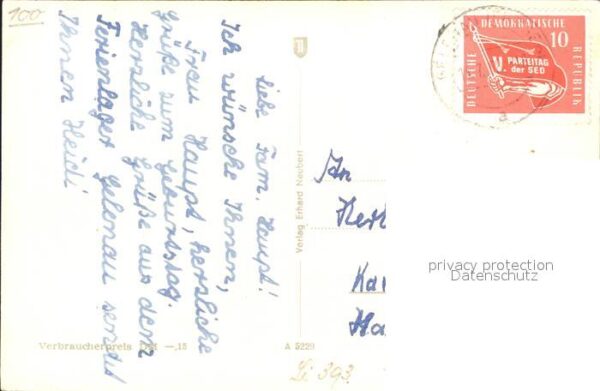 100
Liebe Fam. Haupt!
Ich wünsche Ihnen,
Frau Haupt, herzliche
Grüße zum Geburtstag.
Herzliche Grüße aus dem
Ferienlager Gelenau sendet
Ihnen Heidi
Verbraucherpreis DM —,15
A 5229
Verlag Erhard Neubert
DEUTSCHE DEMOKRATISCHE REPUBLIK
10
V. PARTEITAG
der SED
An
privacy protection
Datenschutz
Li 393.